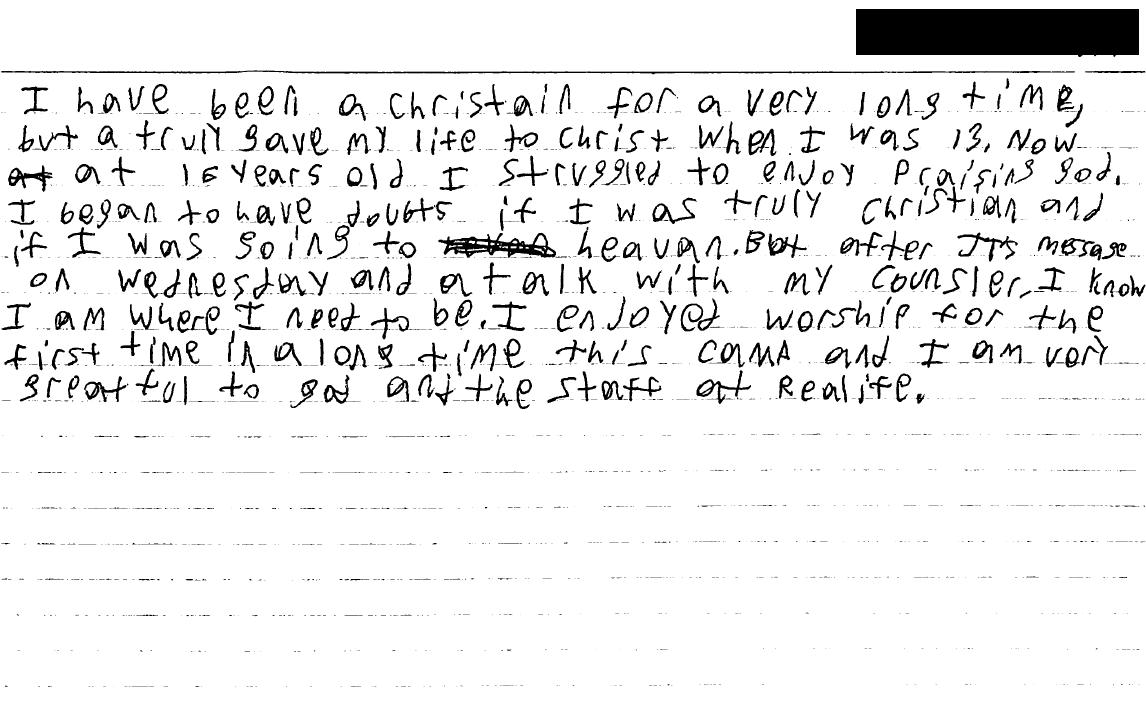 I have been a christain for a very long time,
but a trull gave my life to christ when I was 13. Now
at at 16 years old I struggled to enjoy praising god.
I began to have doubts if I was truly christian and
if I was going to heavan. But after JT's message
on wednesday and a talk with my counsler, I know
I am where I need to be. I enjoyed worship for the
first time in a long time this camp and I am very
greatful to god and the staff at Realife.